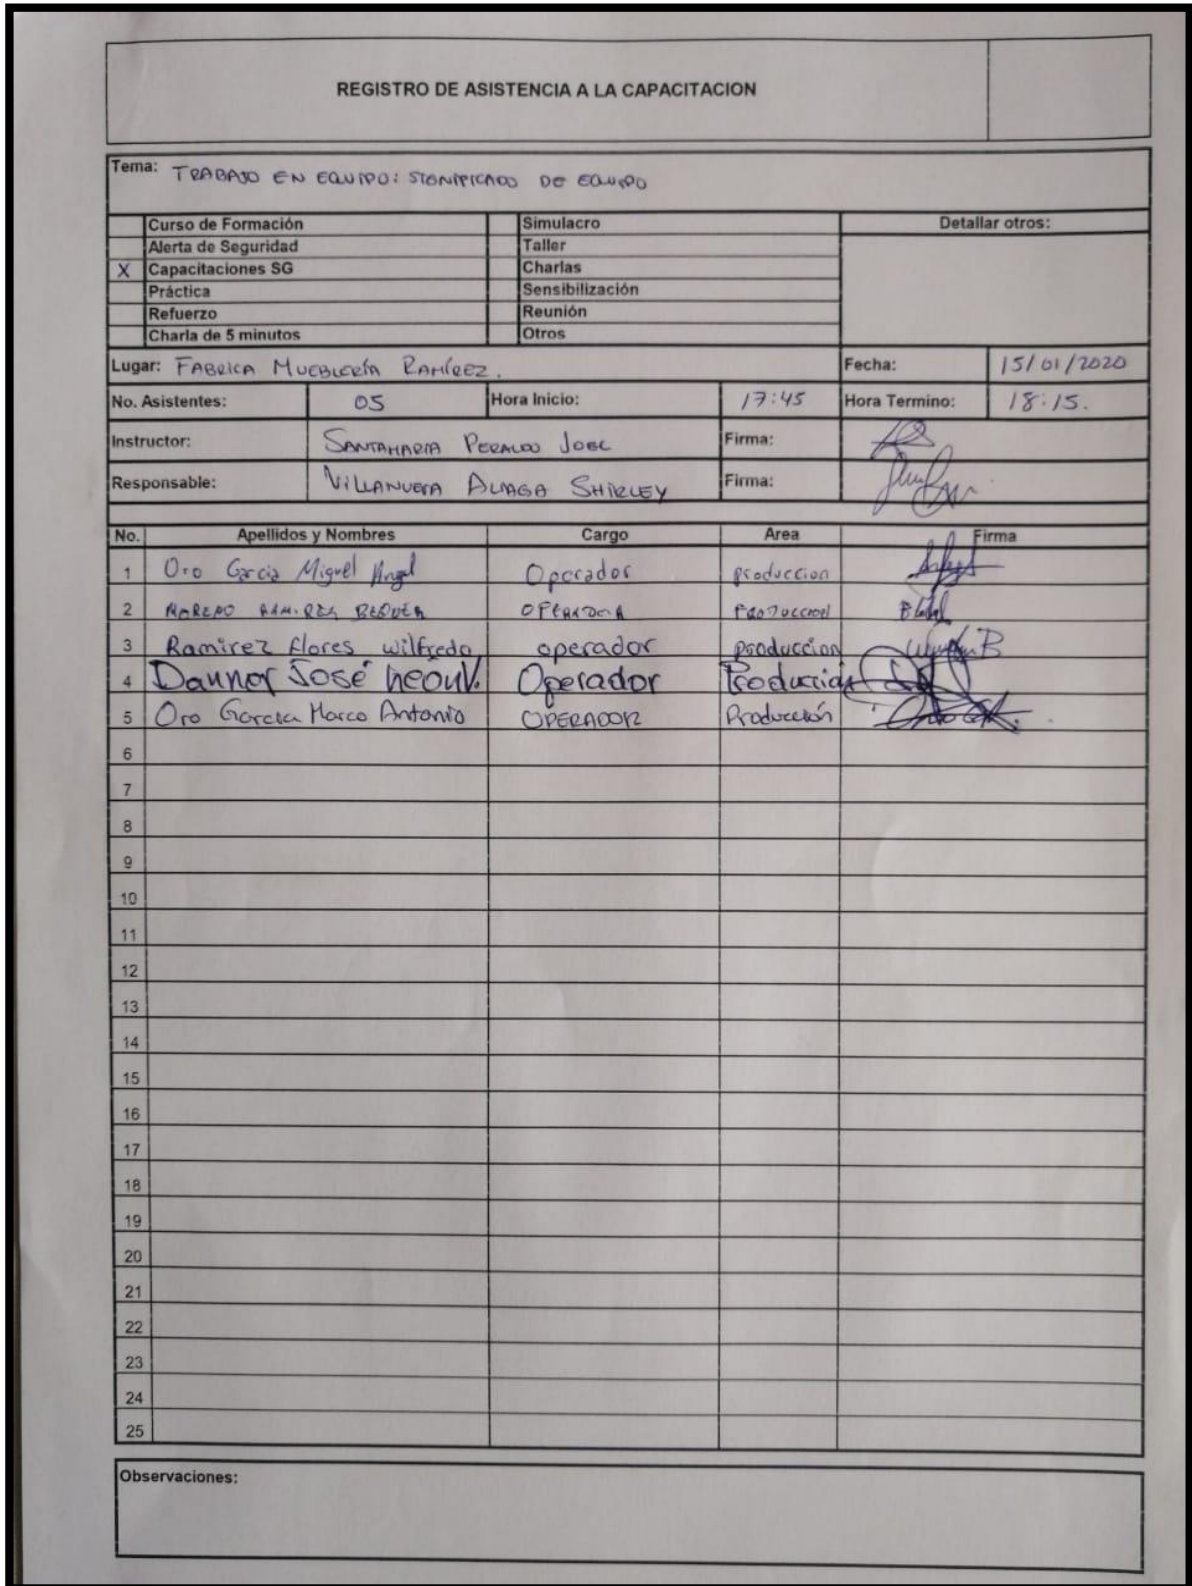 REGISTRO DE ASISTENCIA A LA CAPACITACION
Tema: TRABAJO EN EQUIPO: SIGNIFICADO DE EQUIPO
Curso de Formación Simulacro Detallar otros:
Alerta de Seguridad Taller
X Capacitaciones SG Charlas
Práctica Sensibilización
Refuerzo Reunión
Charla de 5 minutos Otros
Lugar: FABRICA MUEBLERÍA RAMÍREZ. Fecha: 15/01/2020
No. Asistentes: 05 Hora Inicio: 17:45 Hora Termino: 18:15.
Instructor: SANTAMARIA Firma:
Responsable: VILLANUEVA ALIAGA SHIRLEY Firma:
No. Apellidos y Nombres Cargo Area Firma
1 Oro Garcia Miguel Angel Operador produccion
2 MORENO OPERADOR PRODUCCION
3 Ramirez flores wilfredo operador produccion
4 José Operador Producción
5 Oro Garcia Marco Antonio OPERADOR Producción
6
7
8
9
10
11
12
13
14
15
16
17
18
19
20
21
22
23
24
25
Observaciones: